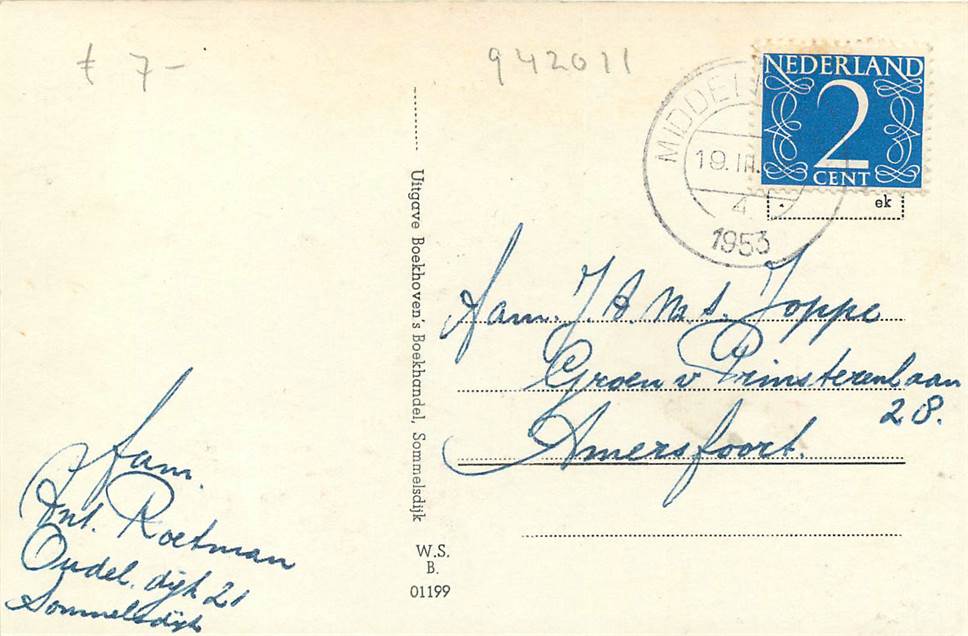 € 7-
942011
NEDERLAND
2
CENT
MIDDEL
19.III.
4
1953
ek
Fam. J. A. M. S. Joppe
Groen v Prinstererlaan
28.
Amersfoort.
Uitgave Boekhoven's Boekhandel, Sommelsdijk
W.S.
B.
01199
fam.
Ant. Roetman
Oudel. dijk 21
Sommelsdijk